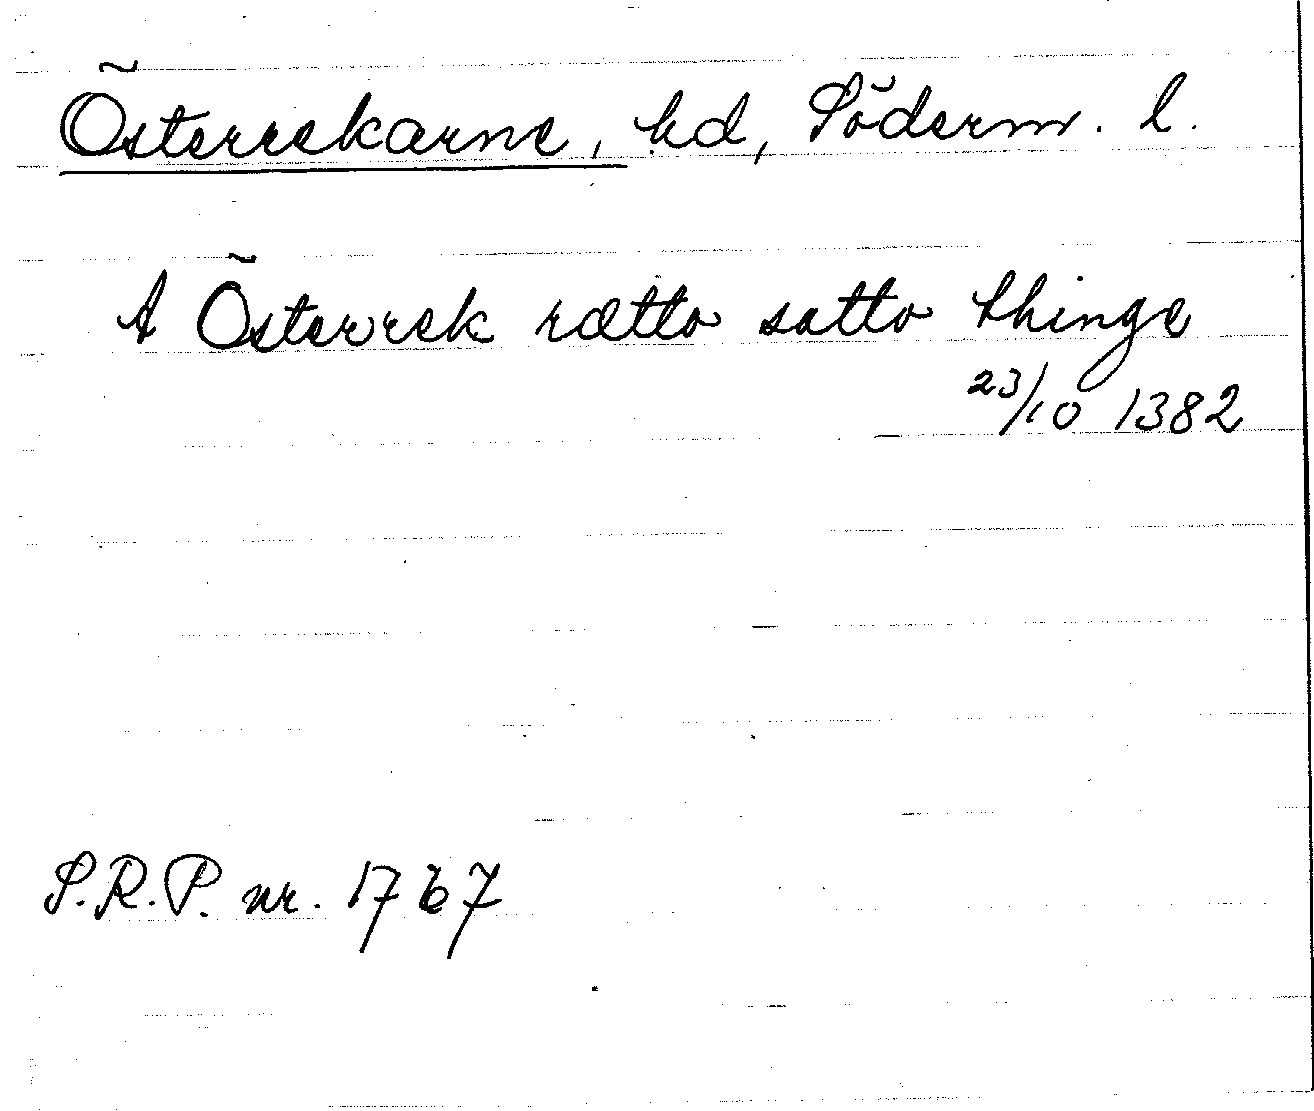 Österrekarne, hd, Söderm. l.
A Österrek rætto satto thinge
23/10 1382
S.R.P. nr. 1767